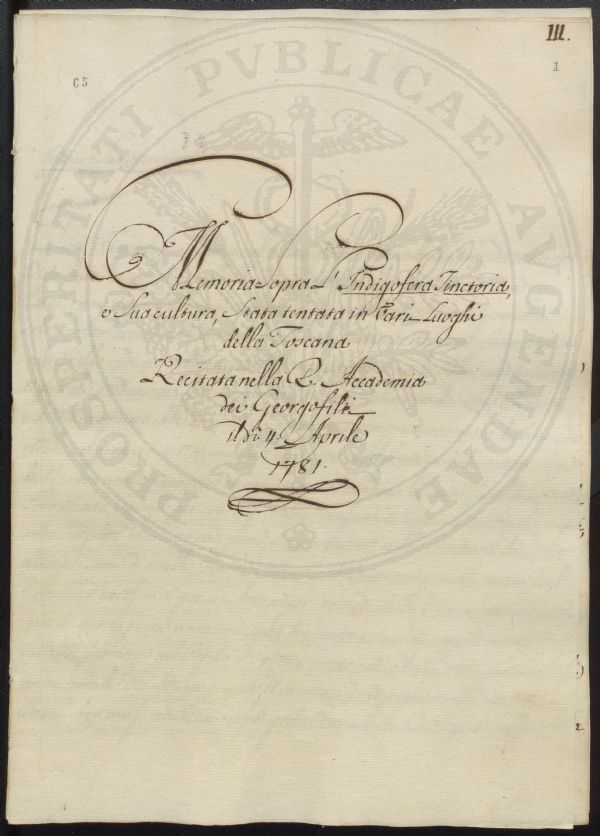 III.
1
65
PROSPERITATI PVBLICAE AVGENDAE
Memoria Sopra L' Indigofera Tinctoria,
e Sua cultura, Stata tentata in Varii Luoghi
della Toscana
Recitata nella R. Accademia
dei Georgofili
il dì 4. Aprile
1781.